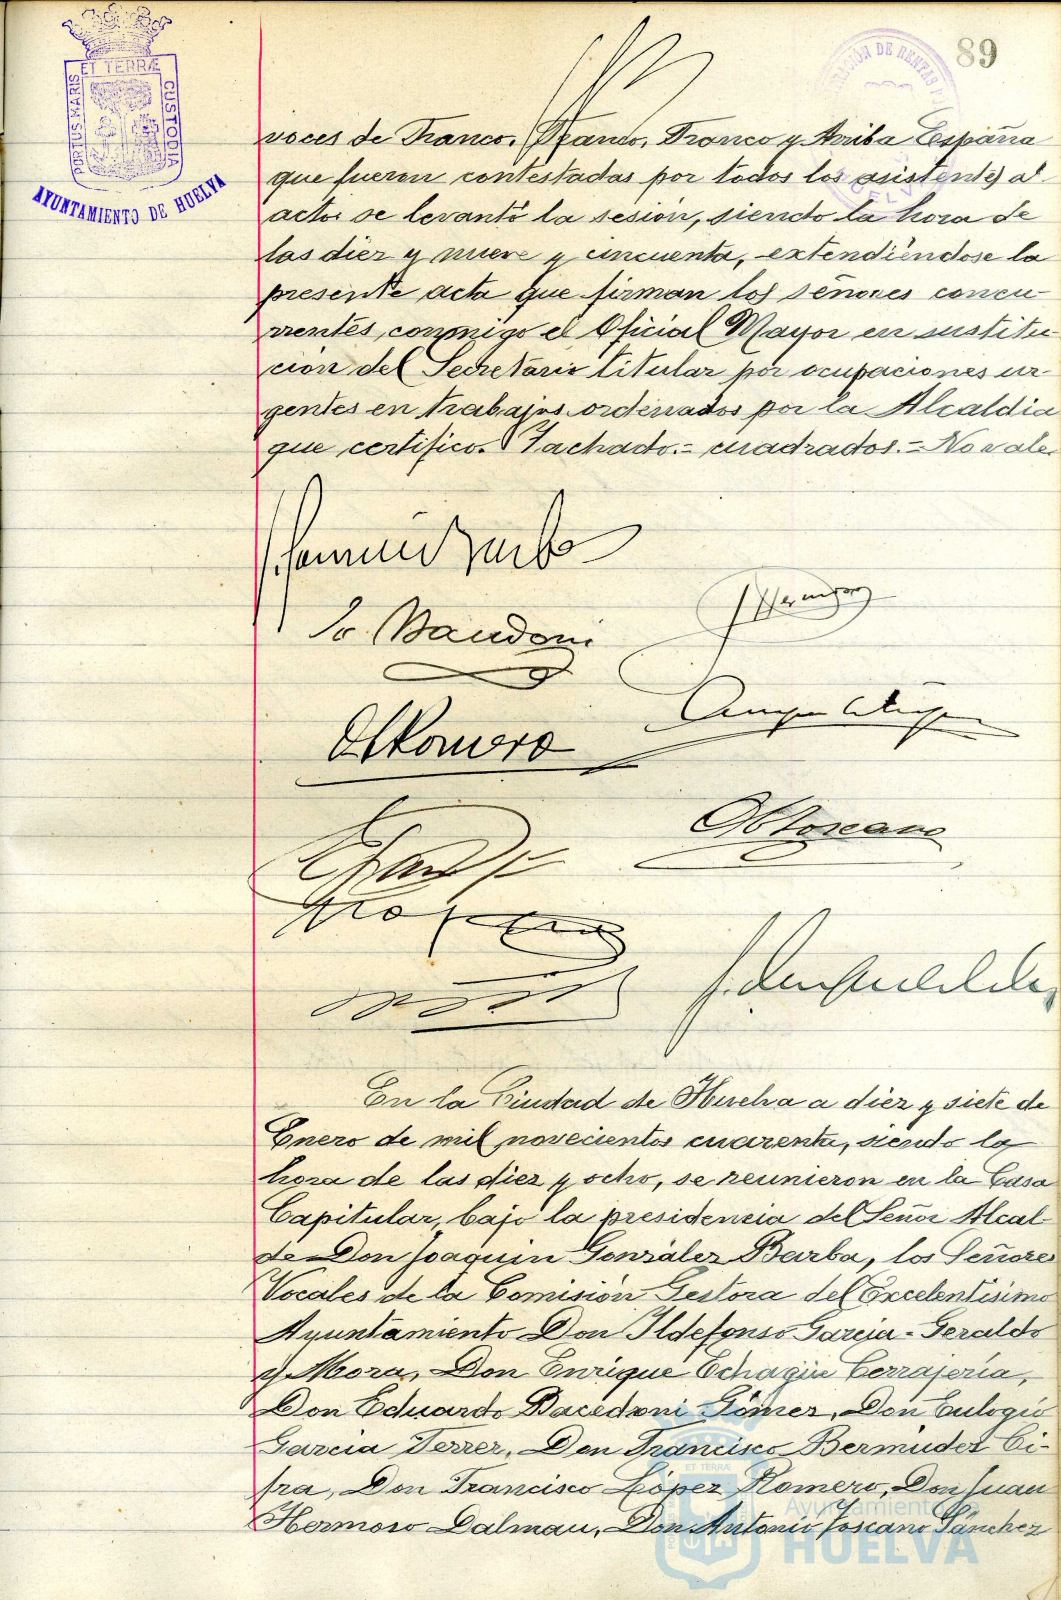 89
ET TERRÆ
PORTUS MARIS
CUSTODIA
AYUNTAMIENTO DE HUELVA
voces de Franco, Franco, Franco y Arriba España
que fueron contestadas por todos los asistentes al
acto, se levantó la sesión, siendo la hora de
las diez y nueve y cincuenta, extendiéndose la
presente acta que firman los señores concu-
rrentes, conmigo el Oficial Mayor en sustitu-
ción del Secretario titular por ocupaciones ur-
gentes en trabajos ordenados por la Alcaldia
que certifico. Tachado.= cuadrados.= No vale.
En la Ciudad de Huelva a diez y siete de
Enero de mil novecientos cuarenta, siendo la
hora de las diez y ocho, se reunieron en la Casa
Capitular, bajo la presidencia del Señor Alcal-
de Don Joaquin González Barba, los Señores
Vocales de la Comisión Gestora del Excelentísimo
Ayuntamiento Don Ildefonso Garcia-Geraldo
y Mora, Don Enrique Echagüe Cerrajería,
Don Eduardo Bacedoni Gómez, Don Eulogio
Garcia Ferrer, Don Francisco Bermudez Ci-
fra, Don Francisco López Romero, Don Juan
Hermoso Dalmau, Don Antonio Toscano Sánchez
Ayuntamiento de
HUELVA